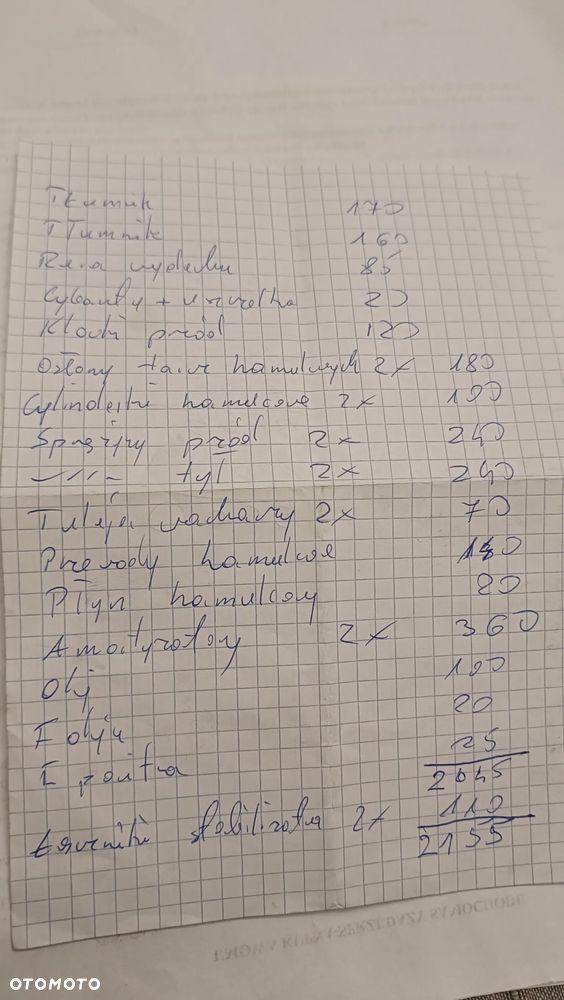 Tłumik 170
Tłumnik 160
Rura wydechu 85
Cybanty + uszczelka 20
Klocki przód 120
Osłony tarcz hamulcowych 2x 180
Cylinderki hamulcowe 2x 100
Sprężyny przód 2x 240
-//- tył 2x 240
Tuleja wahaczy 2x 70
Przewody hamulcowe
Płyn hamulcowy 20
Amortyzatory 2x 360
Olej 100
F oleju 20
F powietrza 25
2045
Łączniki stabilizatora 2x 110
2155
UMOWA KUPNA-SPRZEDAŻY SAMOCHODU
OTOMOTO